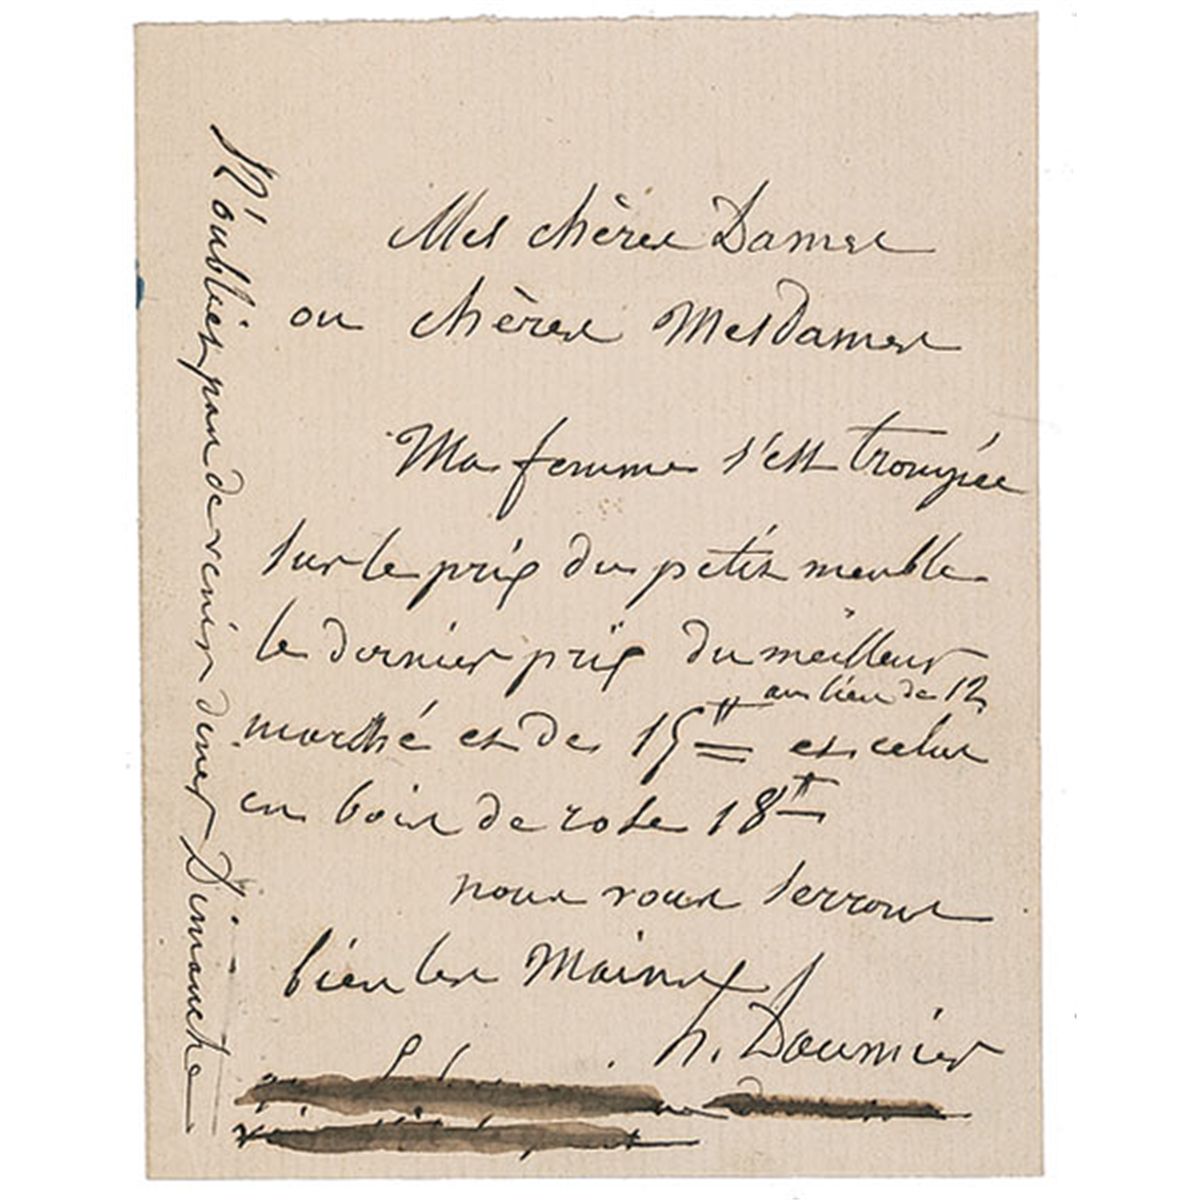 Mes chères Dames
ou chères MesDames
Ma femme s'est trompée
sur le prix du petit meuble
le dernier prix du meilleur
au lieu de 12
marché est de 15ᶠᶠ et celui
en bois de rose 18ᶠᶠ
nous vous serrons
bien les Mains
h. Daumier
N'oubliez pas de venir diner Dimanche